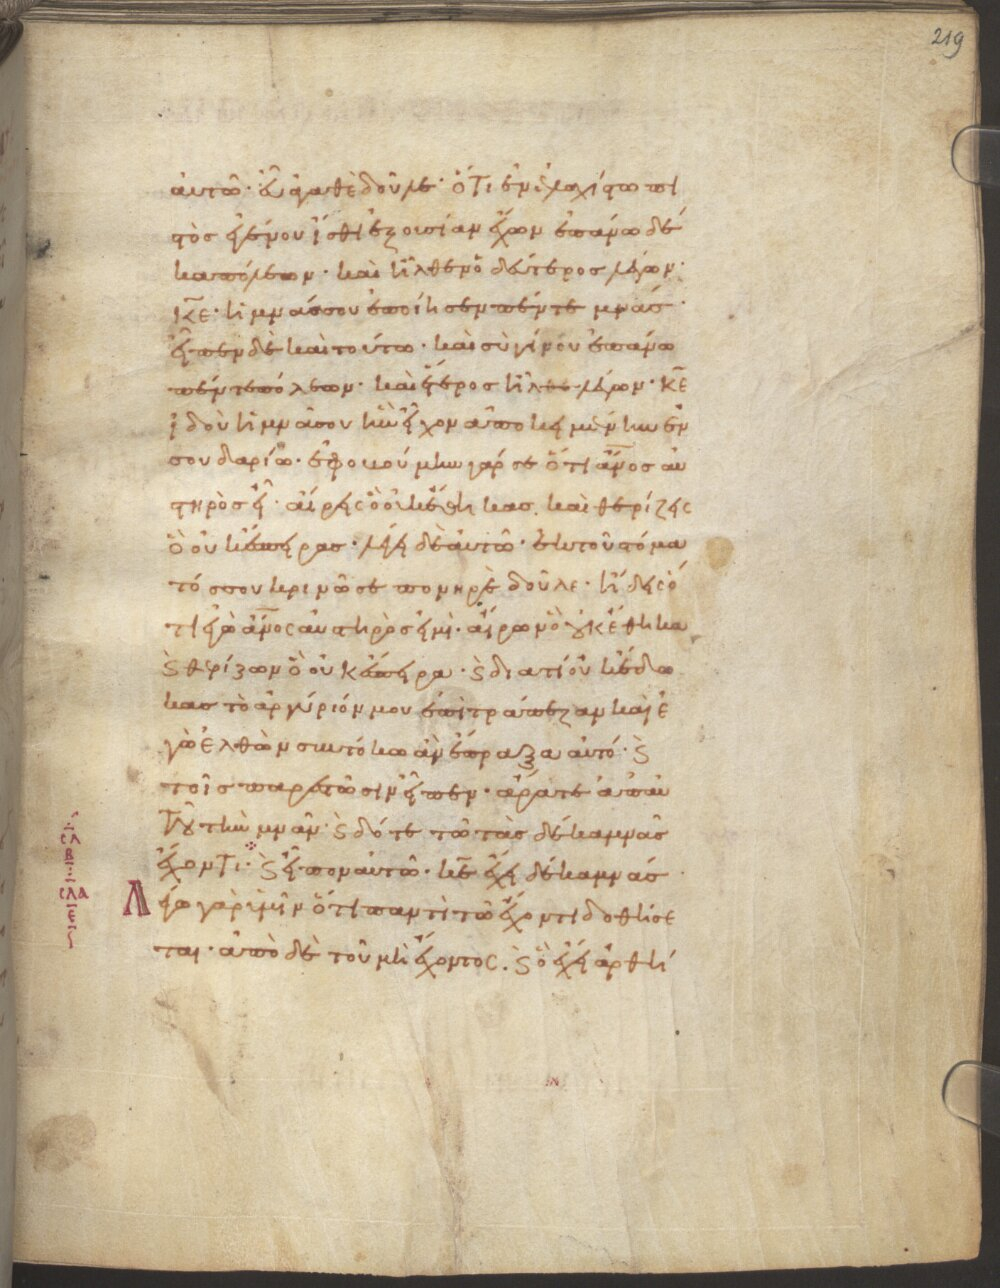 219
αυτῶ· εὖ ἀγαθὲ δοῦλε· ὅτι ἐν ἐλαχίστω πι
στὸς ἐγένου ἴσθι ἐξουσίαν ἔχων ἐπάνω δέ
κα πόλεων· καὶ ἦλθεν ὁ δεύτερος λέγων·
κε· ἡ μνᾶ σου ἐποίησεν πέντε μνᾶς·
εἶπεν δὲ καὶ τούτω· καὶ σὺ γίνου ἐπάνω
πέντε πόλεων· καὶ ἕτερος ἦλθε λέγων· κε
ἰδοὺ ἡ μνᾶ σου ἣν εἶχον ἀποκειμένην ἐν
σουδαρίω· ἐφοβούμην γάρ σε ὅτι ανος αυ
στηρὸς εἶ· αἴρεις ὃ οὐκ ἔθηκας. καὶ θερίζεις
ὃ οὐκ ἔσπειρας· λέγει δὲ αὐτῶ· ἐκ τοῦ στόμα
τός σου κρινῶ σε πονηρὲ δοῦλε· ἤδεις ὅ
τι ἐγὼ ανος αυστηρὸς εἰμὶ· αἴρων ὃ οὐκ ἔθηκα
ϗ θερίζων ὃ οὐκ ἔσπειρα· ϗ διατί οὐκ ἔδω
κας τὸ ἀργύριόν μου ἐπὶ τράπεζαν καὶ ἐ
γὼ ἐλθὼν σὺν τόκω ἂν ἔπραξα αὐτό· ϗ
τοῖς παρεστῶσιν εἶπεν· ἄρατε ἀπ' αυ
τοῦ τὴν μνᾶν· ϗ δότε τῶ τὰς δέκα μνᾶς
ἔχοντι· ϗ εἶπον αὐτῶ· κε ἔχει δέκα μνᾶς·
Λέγω γὰρ ὑμῖν ὅτι παντὶ τῶ ἔχοντι δοθήσε
ται· ἀπὸ δὲ τοῦ μὴ ἔχοντος. ϗ ὃ ἔχει ἀρθή